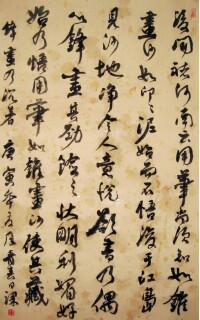 後問褚河南云用筆當須知如錐
畫沙如印印泥始而不悟後于江島
見沙地净令人意悦欲書乃偶
以鋒畫其勁險之狀明利媚好
始乃悟用筆如錐畫沙使其藏
鋒畫乃沉着 庚寅年夏月